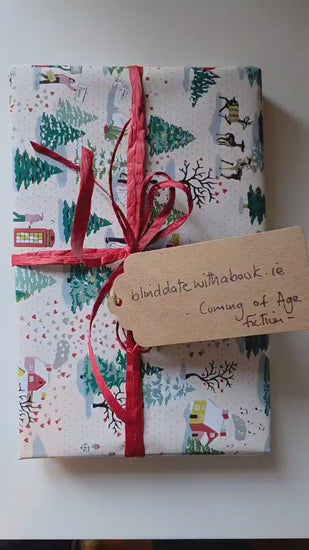 blinddatewithabook.ie
- Coming of Age
fiction -